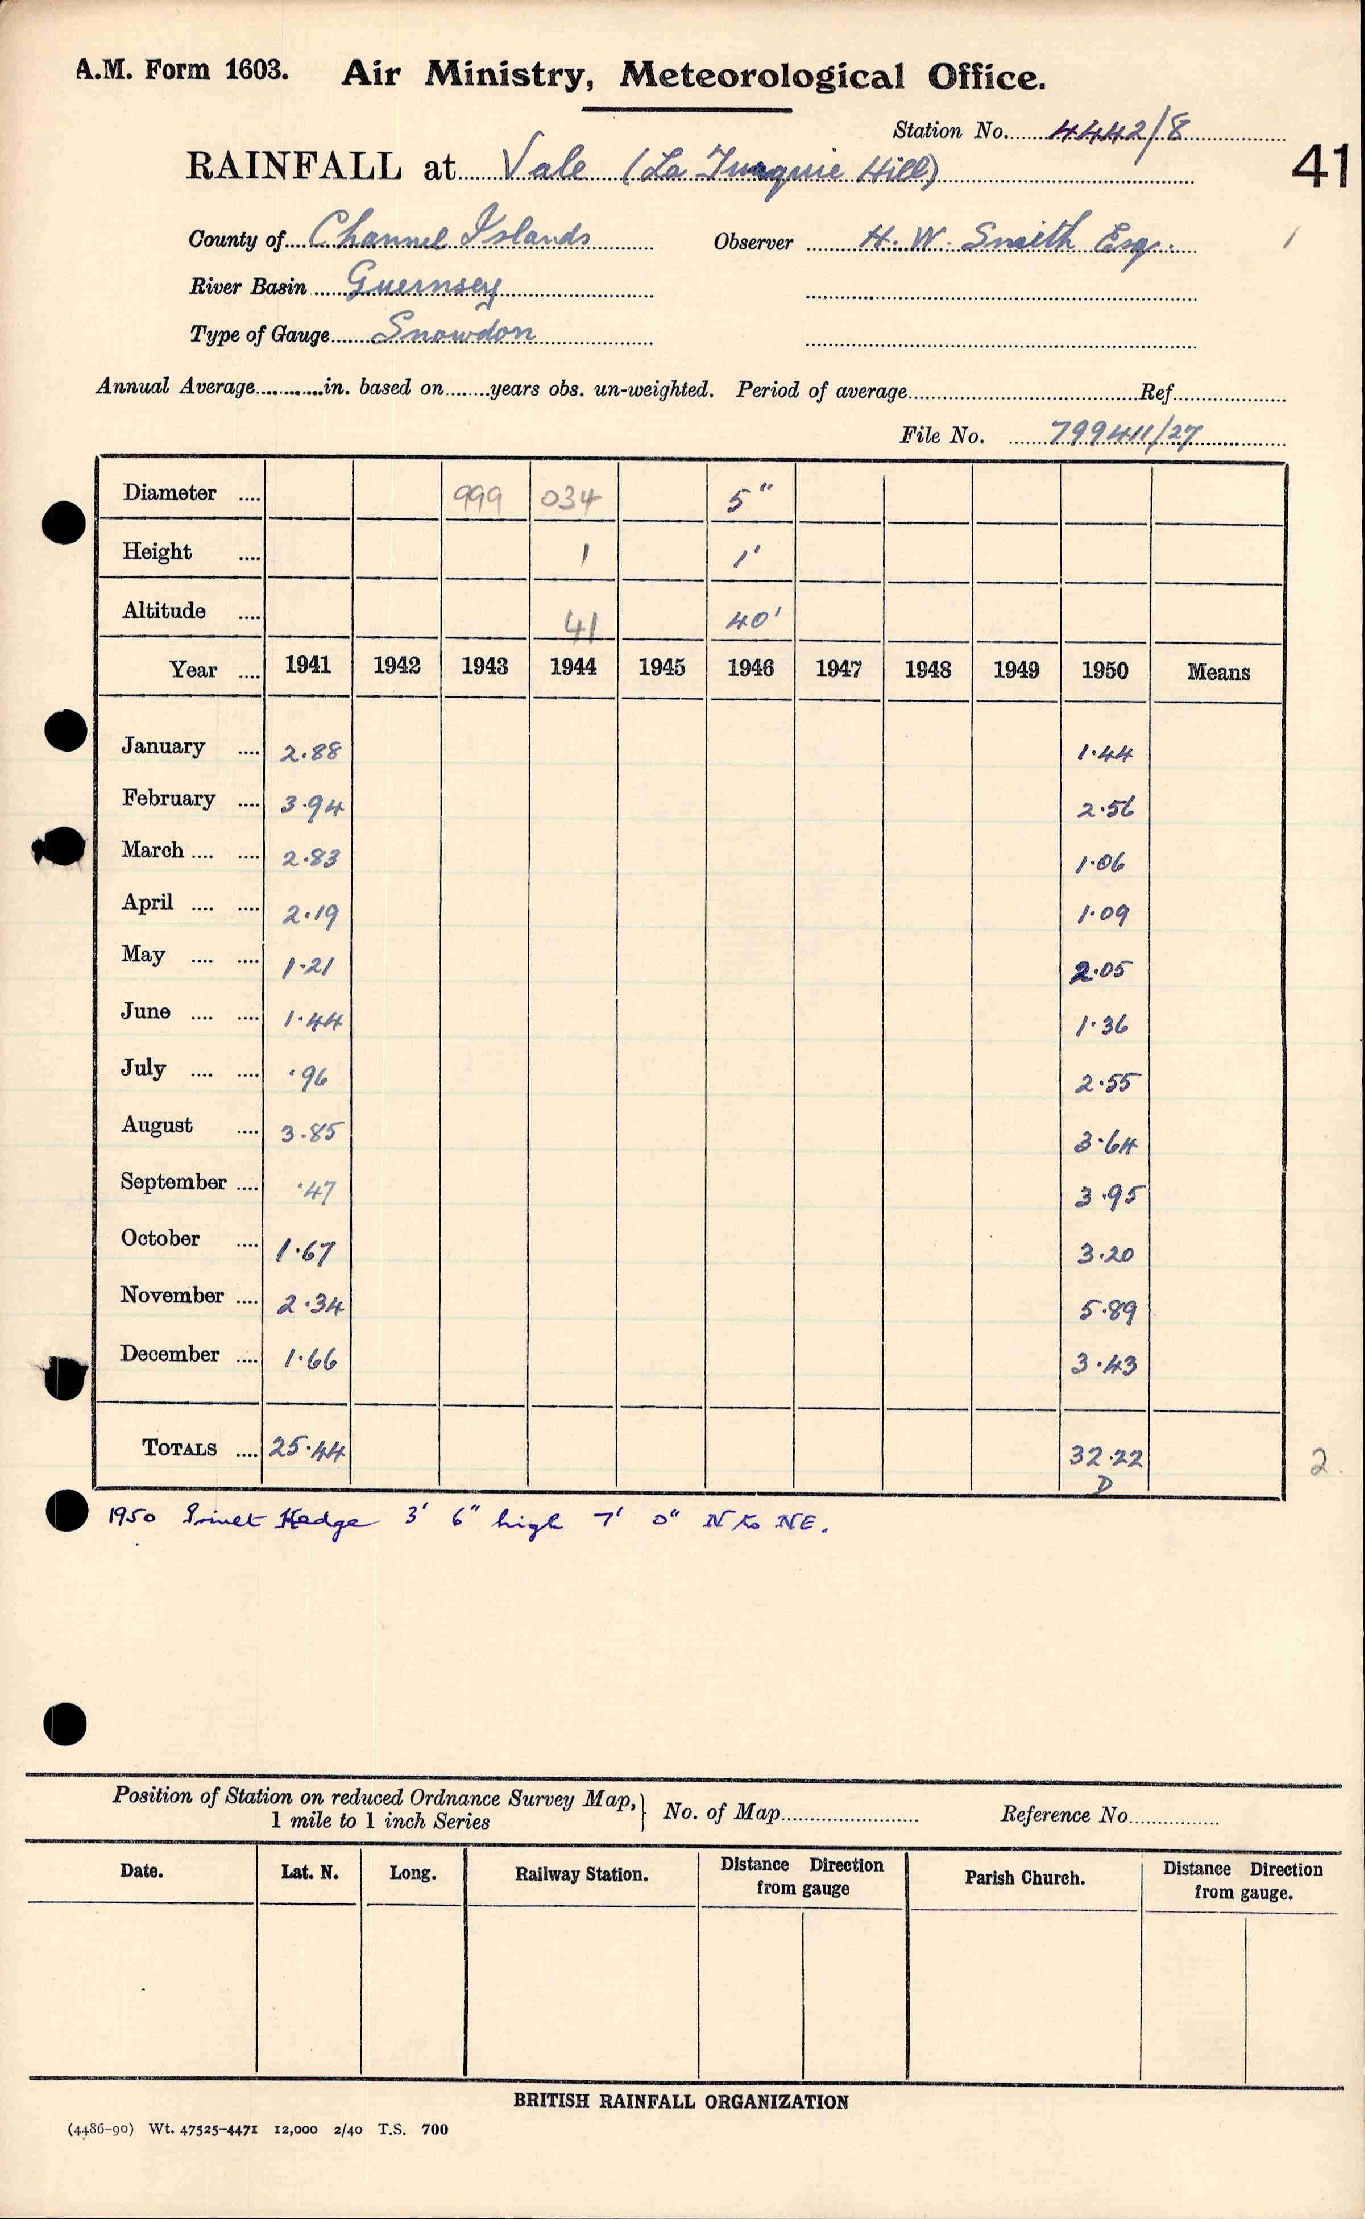 A.M. Form 1603. Air Ministry, Meteorological Office.
Station No. 4442/8
41
RAINFALL at Vale (La Turquie Hill)
County of Channel Islands Observer H. W. Smith Esq. 1
River Basin Guernsey
Type of Gauge Snowdon
Annual Average............in. based on........years obs. un-weighted. Period of average............Ref............
File No. 799411/27
Diameter .... 999 034 5"
Height .... 1 1'
Altitude .... 41 40'
Year .... 1941 1942 1943 1944 1945 1946 1947 1948 1949 1950 Means
January .... 2.88 1.44
February .... 3.94 2.56
March .... .... 2.83 1.06
April .... .... 2.19 1.09
May .... .... 1.21 2.05
June .... .... 1.44 1.36
July .... .... .96 2.55
August .... 3.85 3.64
September .... .47 3.95
October .... 1.67 3.20
November .... 2.34 5.89
December .... 1.66 3.43
TOTALS .... 25.44 32.22 2
D
1950 Privet Hedge 3' 6" high 7' 0" N to NE.
Position of Station on reduced Ordnance Survey Map, 1 mile to 1 inch Series } No. of Map............ Reference No............
Date. Lat. N. Long. Railway Station. Distance Direction from gauge Parish Church. Distance Direction from gauge.
BRITISH RAINFALL ORGANIZATION
(4486-90) Wt. 47525-4471 12,000 2/40 T.S. 700